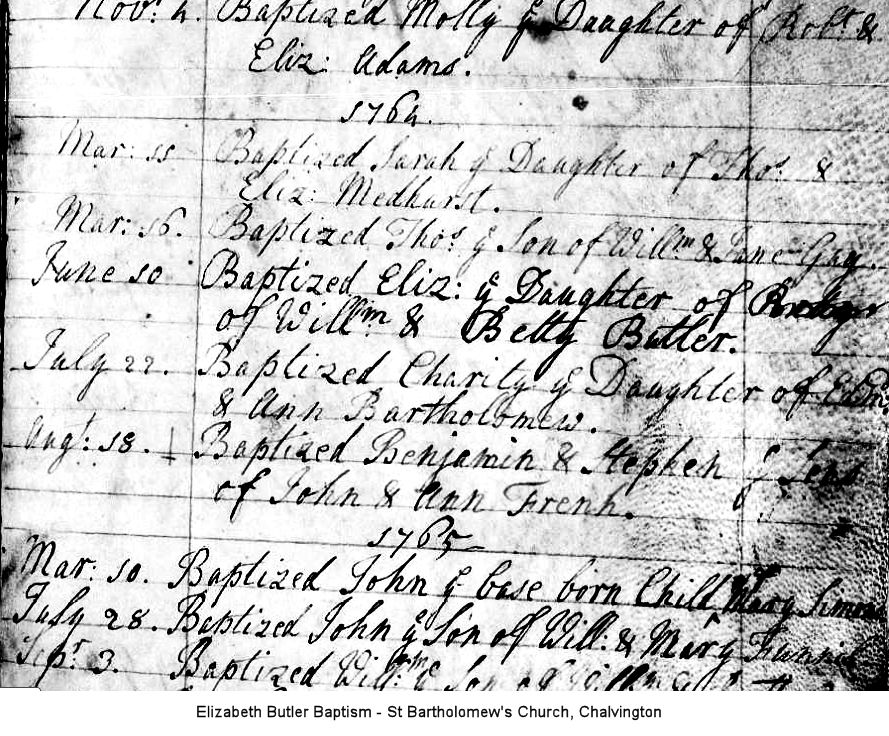 Nov.r 4. Baptized Molly ye Daughter of Robt. &
Eliz: Adams.
1764.
Mar: 11 Baptized Sarah ye Daughter of Thos. &
Eliz: Medhurst.
Mar: 16. Baptized Thos. ye Son of Willm & Jane Guy.
June 10 Baptized Eliz: ye Daughter of
of Willm & Betty Butler.
July 22. Baptized Charity ye Daughter of Edm
& Ann Bartholomew.
Augt: 18. + Baptized Benjamin & Stephen ye Sons
of John & Ann Frenh.
1765
Mar: 10. Baptized John ye base born Child Mary
July 28. Baptized John ye Son of Will: & Mary
Sepr. 3. Baptized Willm ye Son of
Elizabeth Butler Baptism - St Bartholomew's Church, Chalvington